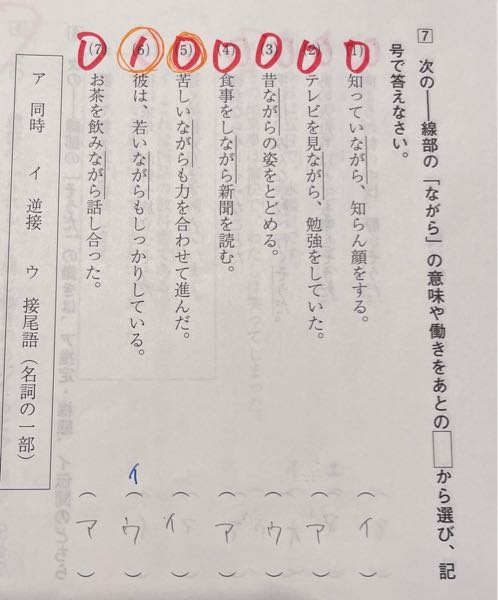 7 次の――線部の「ながら」の意味や働きをあとの□から選び、記
号で答えなさい。
(1) 知っていながら、知らん顔をする。 (イ)
(2) テレビを見ながら、勉強をしていた。 (ア)
(3) 昔ながらの姿をとどめる。 (ウ)
(4) 食事をしながら新聞を読む。 (ア)
(5) 苦しいながらも力を合わせて進んだ。 (イ)
(6) 彼は、若いながらもしっかりしている。 イ (ウ)
(7) お茶を飲みながら話し合った。 (ア)
ア 同時 イ 逆接 ウ 接尾語(名詞の一部)